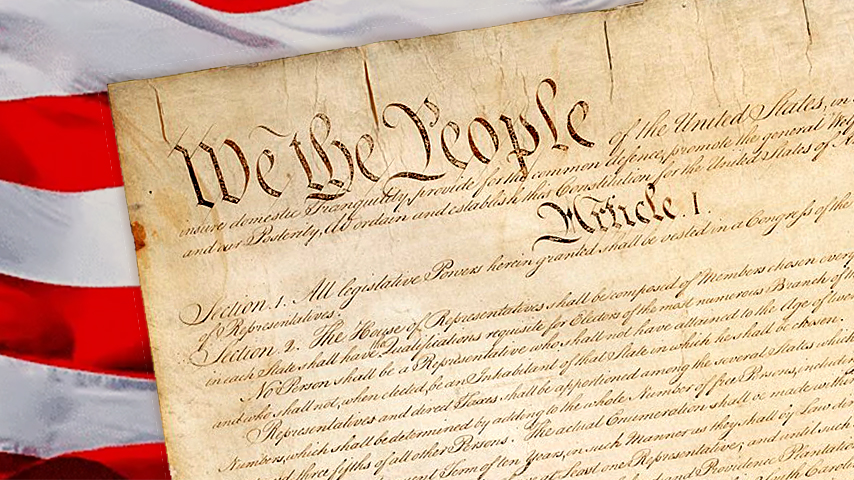 We the People of the United States, in
insure domestic Tranquility, provide for the common defence, promote the general Welf
and our Posterity, do ordain and establish this Constitution for the United States of A
Article. I.
Section. 1. All legislative Powers herein granted shall be vested in a Congress of the
of Representatives.
Section. 2. The House of Representatives shall be composed of Members chosen every
in each State shall have the Qualifications requisite for Electors of the most numerous Branch of the
No Person shall be a Representative who shall not have attained to the Age of twen
and who shall not, when elected, be an Inhabitant of that State in which he shall be chosen.
Representatives and direct Taxes shall be apportioned among the several States which
Numbers, which shall be determined by adding to the whole Number of free Persons, includin
three fifths of all other Persons. The actual Enumeration shall be made within
Term of ten Years, in such Manner as they shall by Law
at Least one Representative; and until such
and Providence Plantatio